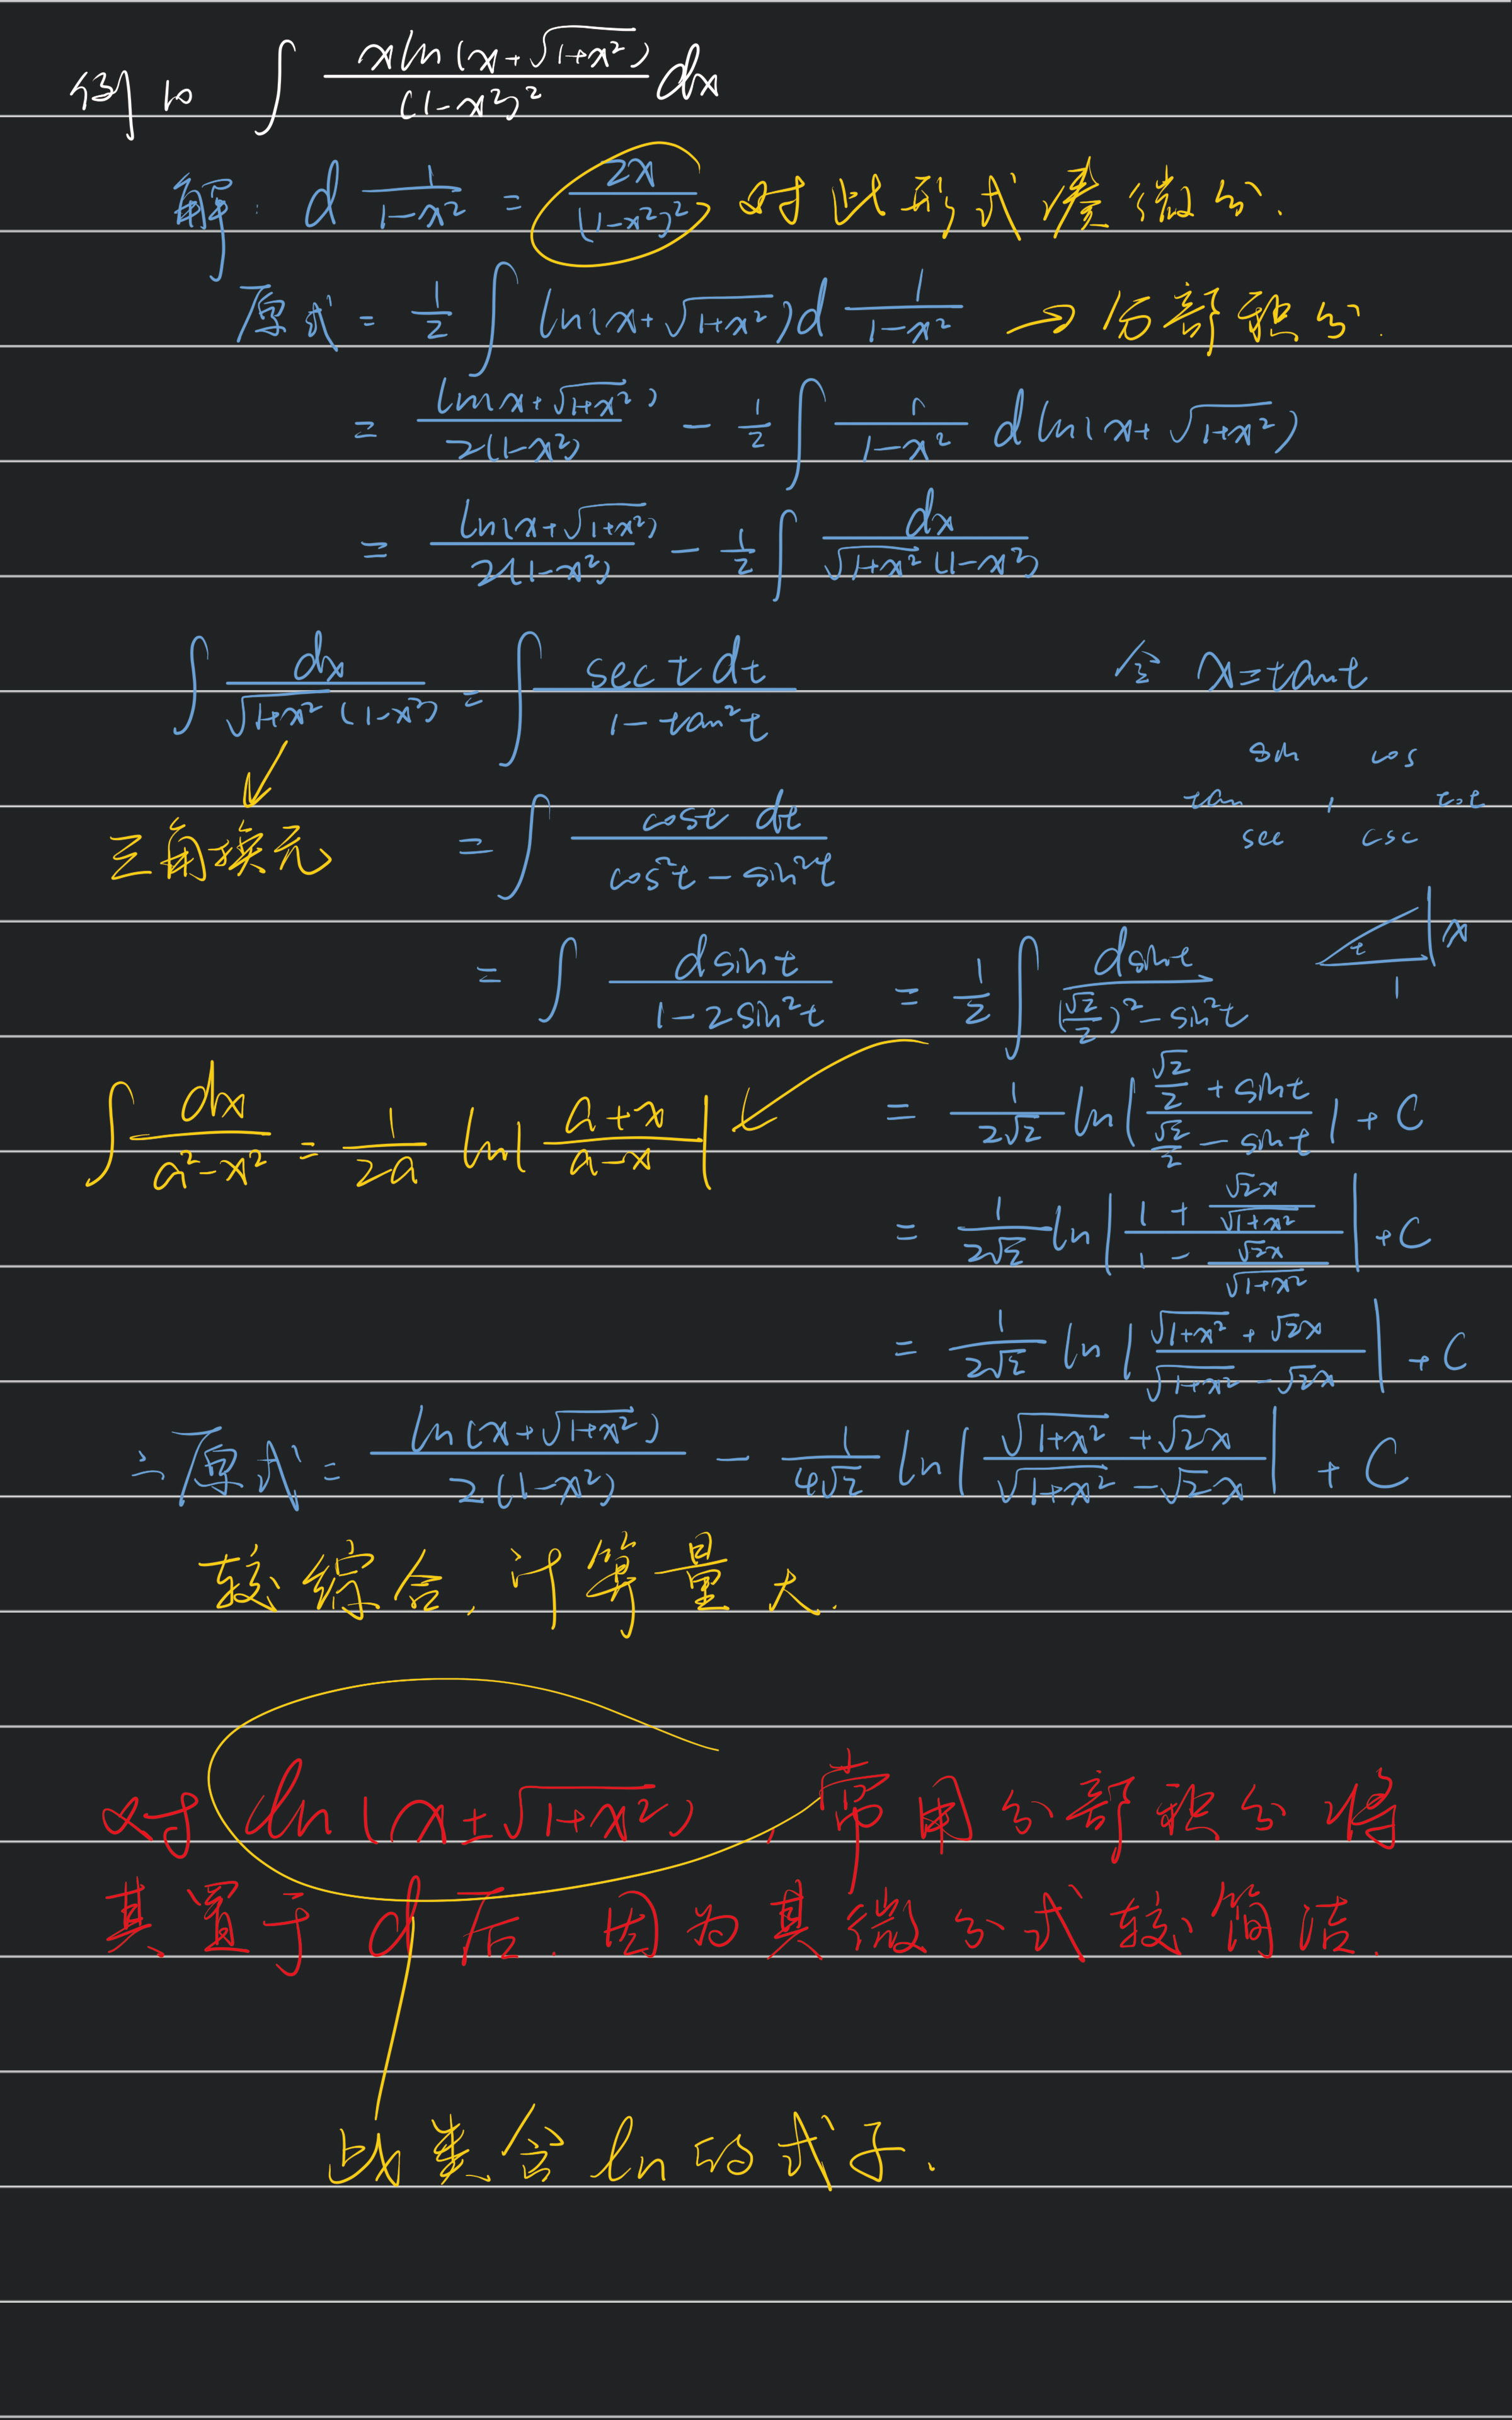 例10 ∫ xln(x+√(1+x²)) / (1-x²)² dx
解: d 1/(1-x²) = 2x/(1-x²)² 对此形式凑微分.
原式 = 1/2 ∫ ln(x+√(1+x²)) d 1/(1-x²) → 分部积分.
= ln(x+√(1+x²)) / 2(1-x²) - 1/2 ∫ 1/(1-x²) d ln(x+√(1+x²))
= ln(x+√(1+x²)) / 2(1-x²) - 1/2 ∫ dx / √(1+x²)(1-x²)
∫ dx / √(1+x²)(1-x²) = ∫ sec t dt / (1-tan²t) 令 x=tant
sin cos
tan 1 cot
sec csc
三角换元 = ∫ cost dt / (cos²t - sin²t)
= ∫ dsint / (1-2sin²t) = 1/2 ∫ dsint / ((√2/2)² - sin²t) t x 1
∫ dx/(a²-x²) = 1/2a ln|(a+x)/(a-x)|
= 1/2√2 ln|(√2/2 + sint)/(√2/2 - sint)| + C
= 1/2√2 ln|(1 + √2x/√(1+x²))/(1 - √2x/√(1+x²))| + C
= 1/2√2 ln|(√(1+x²) + √2x)/(√(1+x²) - √2x)| + C
∴原式 = ln(x+√(1+x²)) / 2(1-x²) - 1/4√2 ln|(√(1+x²) + √2x)/(√(1+x²) - √2x)| + C
较综合, 计算量大.
对于 ln(x±√(1+x²)), 常用分部积分将
其置于d后, 因为其微分式较简洁.
此类含ln的式子.